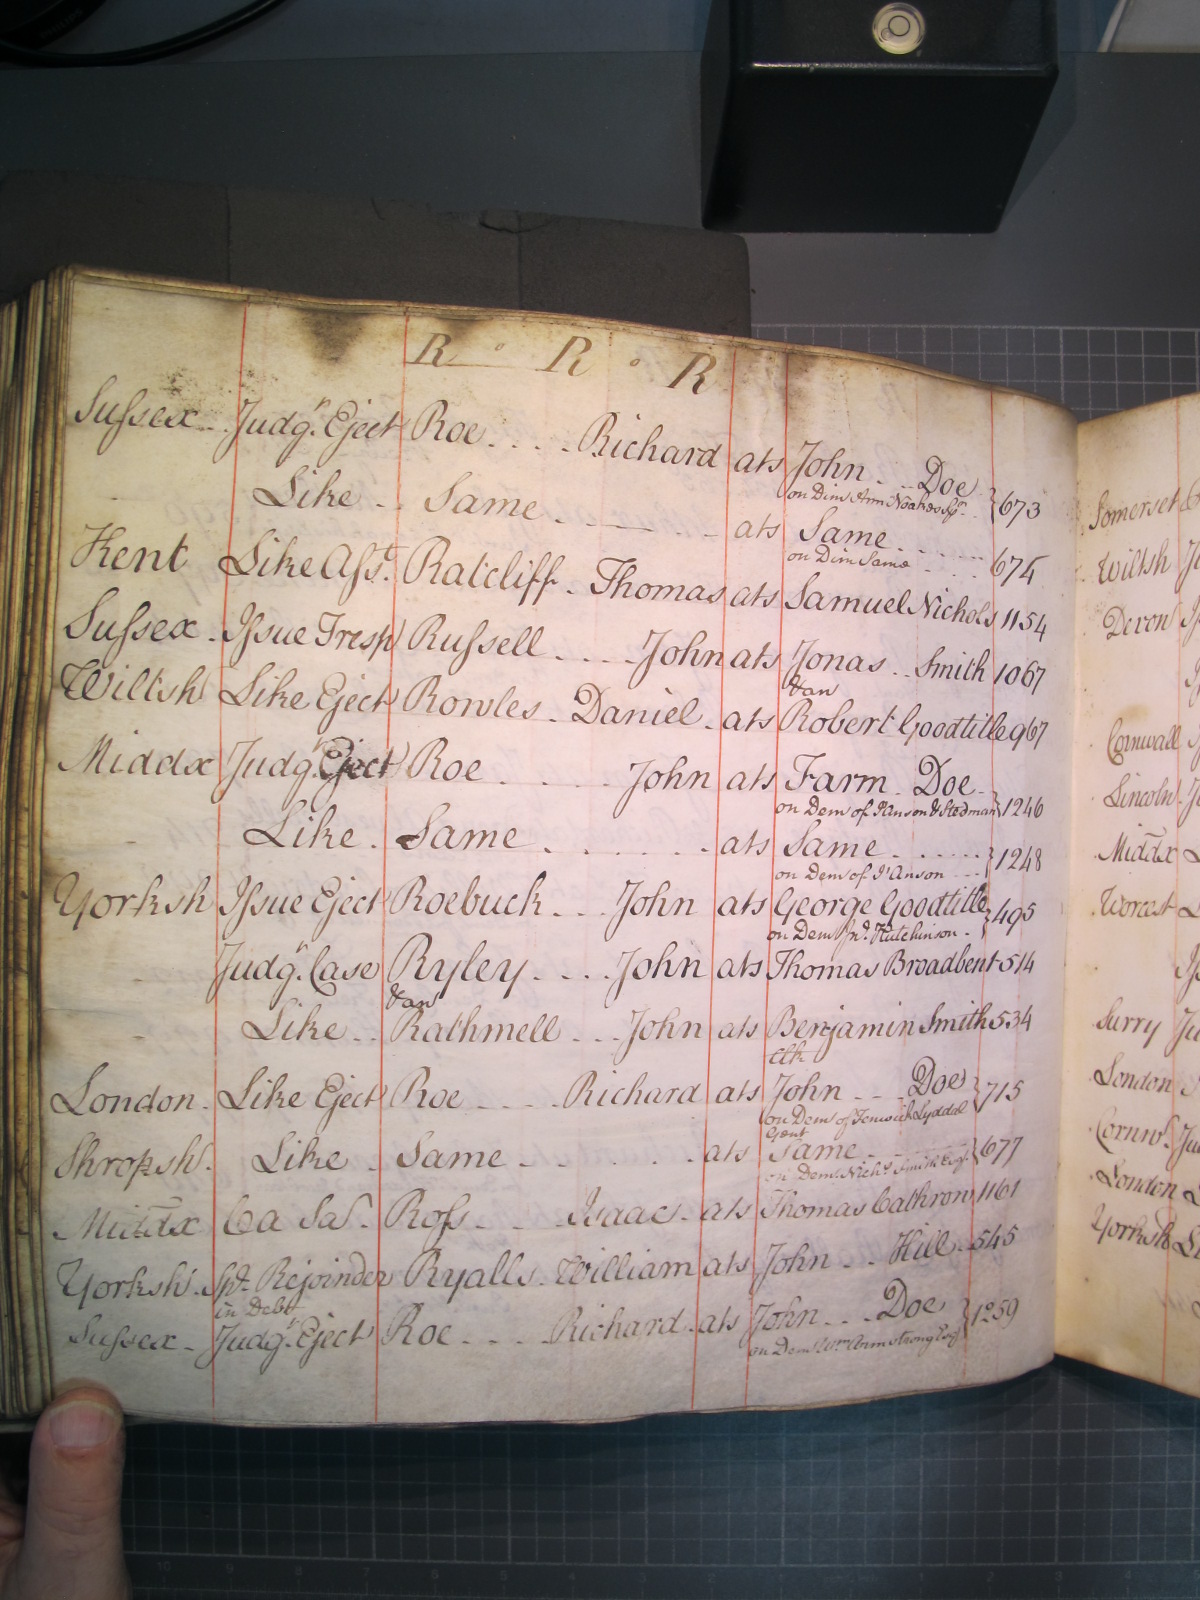 R o R o R
Sussex Judgt. Eject Roe Richard ats John Doe 673
on Dem Ann Noakes
Like Same ats Same 674
on Dem Same
Kent Like Asst. Ratcliff Thomas ats Samuel Nichols 1154
Sussex Issue Tresp Russell John ats Jonas Smith 1067
Wiltsh Like Eject Rowles Daniel ats Robert Goodtitle 967
Middx Judgt. Eject Roe John ats Farm Doe 1246
on Dem of I'Anson & Stedman
Like Same ats Same 1248
on Dem of I'Anson
Yorksh Issue Eject Roebuck John ats George Goodtitle 495
on Dem Jno. Hutchinson
Judgt. Case Ryley John ats Thomas Broadbent 514
Like Rathmell John ats Benjamin Smith 534
Clk
London Like Eject Roe Richard ats John Doe 715
on Dem of Fenwick Lyddal
Gent
Shropsh Like Same ats Same 677
on Dem Nichs Smith Esq.
Middx Ca Sa Ross Isaac ats Thomas Cathrow 1161
Yorksh Spl. Rejoinder Ryalls William ats John Hill 545
in Debt
Sussex Judgt. Eject Roe Richard ats John Doe 1259
on Dem Wm Armstrong Esq
Somerset
Wiltsh
Devon
Cornwall
Lincoln
Middx
Worcest
Surry
London
Cornwl
London
Yorksh